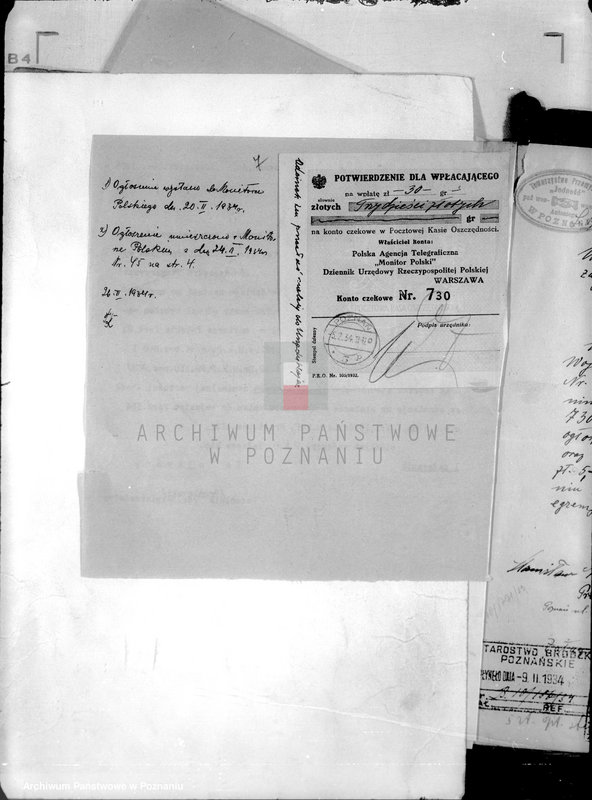 B4
1) Ogłoszenie wysłano do Monitora
Polskiego dn. 20.II.1934r.
2) Ogłoszenie umieszczono w Monito-
rze Polskim z dnia 24.II.1934r
Nr. 45 na str. 4.
26.II.1934r.
POTWIERDZENIE DLA WPŁACAJĄCEGO
na wpłatę zł —30— gr
słownie
złotych Trzydzieści złotych
gr
na konto czekowe w Pocztowej Kasie Oszczędności.
Właściciel konta:
Polska Agencja Telegraficzna
„Monitor Polski"
Dziennik Urzędowy Rzeczypospolitej Polskiej
WARSZAWA
Konto czekowe Nr. 730
Podpis urzędnika:
Stempel dzienny
POZNAŃ
P.K.O. Nr.
Odcinek ten
ARCHIWUM PAŃSTWOWE
W POZNANIU
Towarzystwo Przemysł
„Jedność"
W POZNA
Nr.
730
ogło
oraz
zł. 5,-
egzemp
Stanisław
Poznań ul.
TAROSTWO GRODZK
POZNAŃSKIE
PŁYNĘŁO DNIA -9. II. 1934
REF.
Archiwum Państwowe w Poznaniu